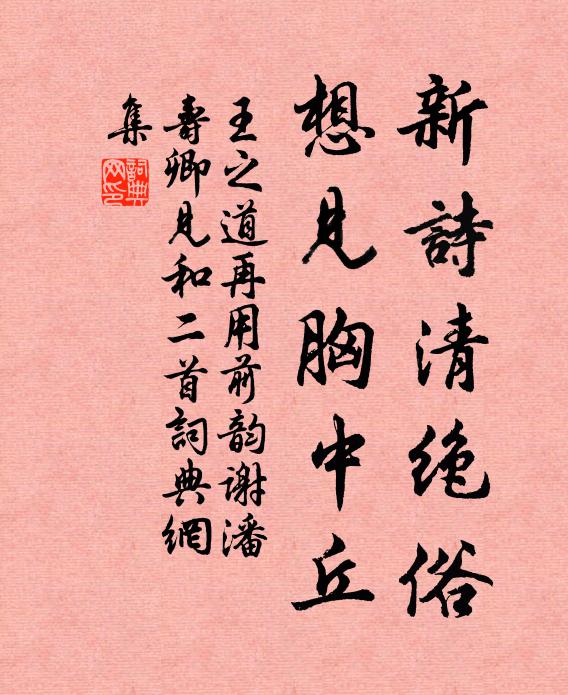 新詩清絶俗
想見胸中丘
王之道再用前韵謝潘
壽卿見和二首詞典網
集
詞典
网印